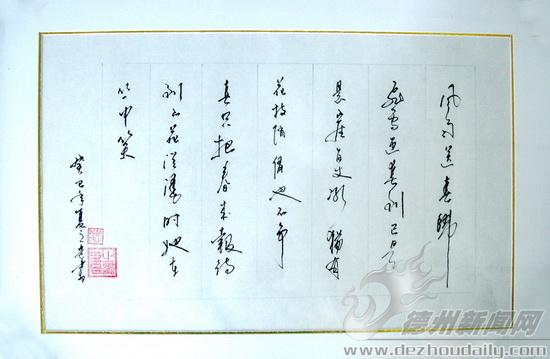 风雨送春歸
飛雪迎春到已是
懸崖百丈冰猶有
花枝俏俏也不争
春只把春来報待
到山花漫时她在
丛中笑
癸巳年夏之书
德州新闻网
www.dezhoudaily.com